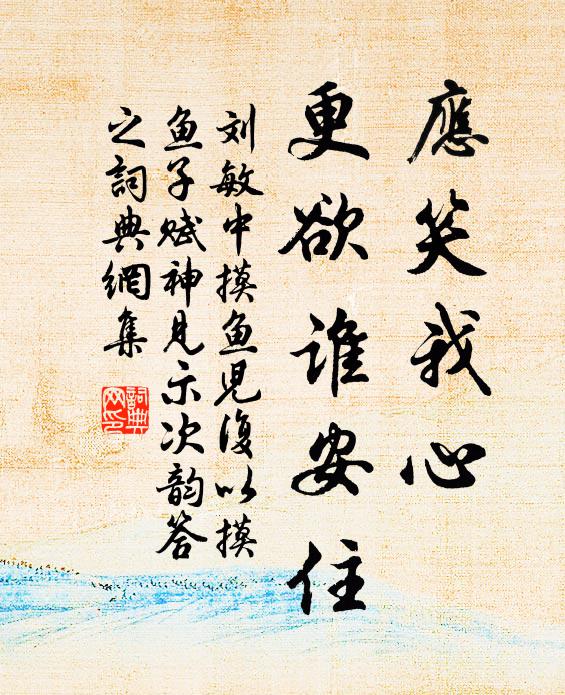 應笑我心
更欲谁安住
刘敏中摸鱼児復以摸
鱼子赋神见示次韵答
之詞典網集
詞典
网印